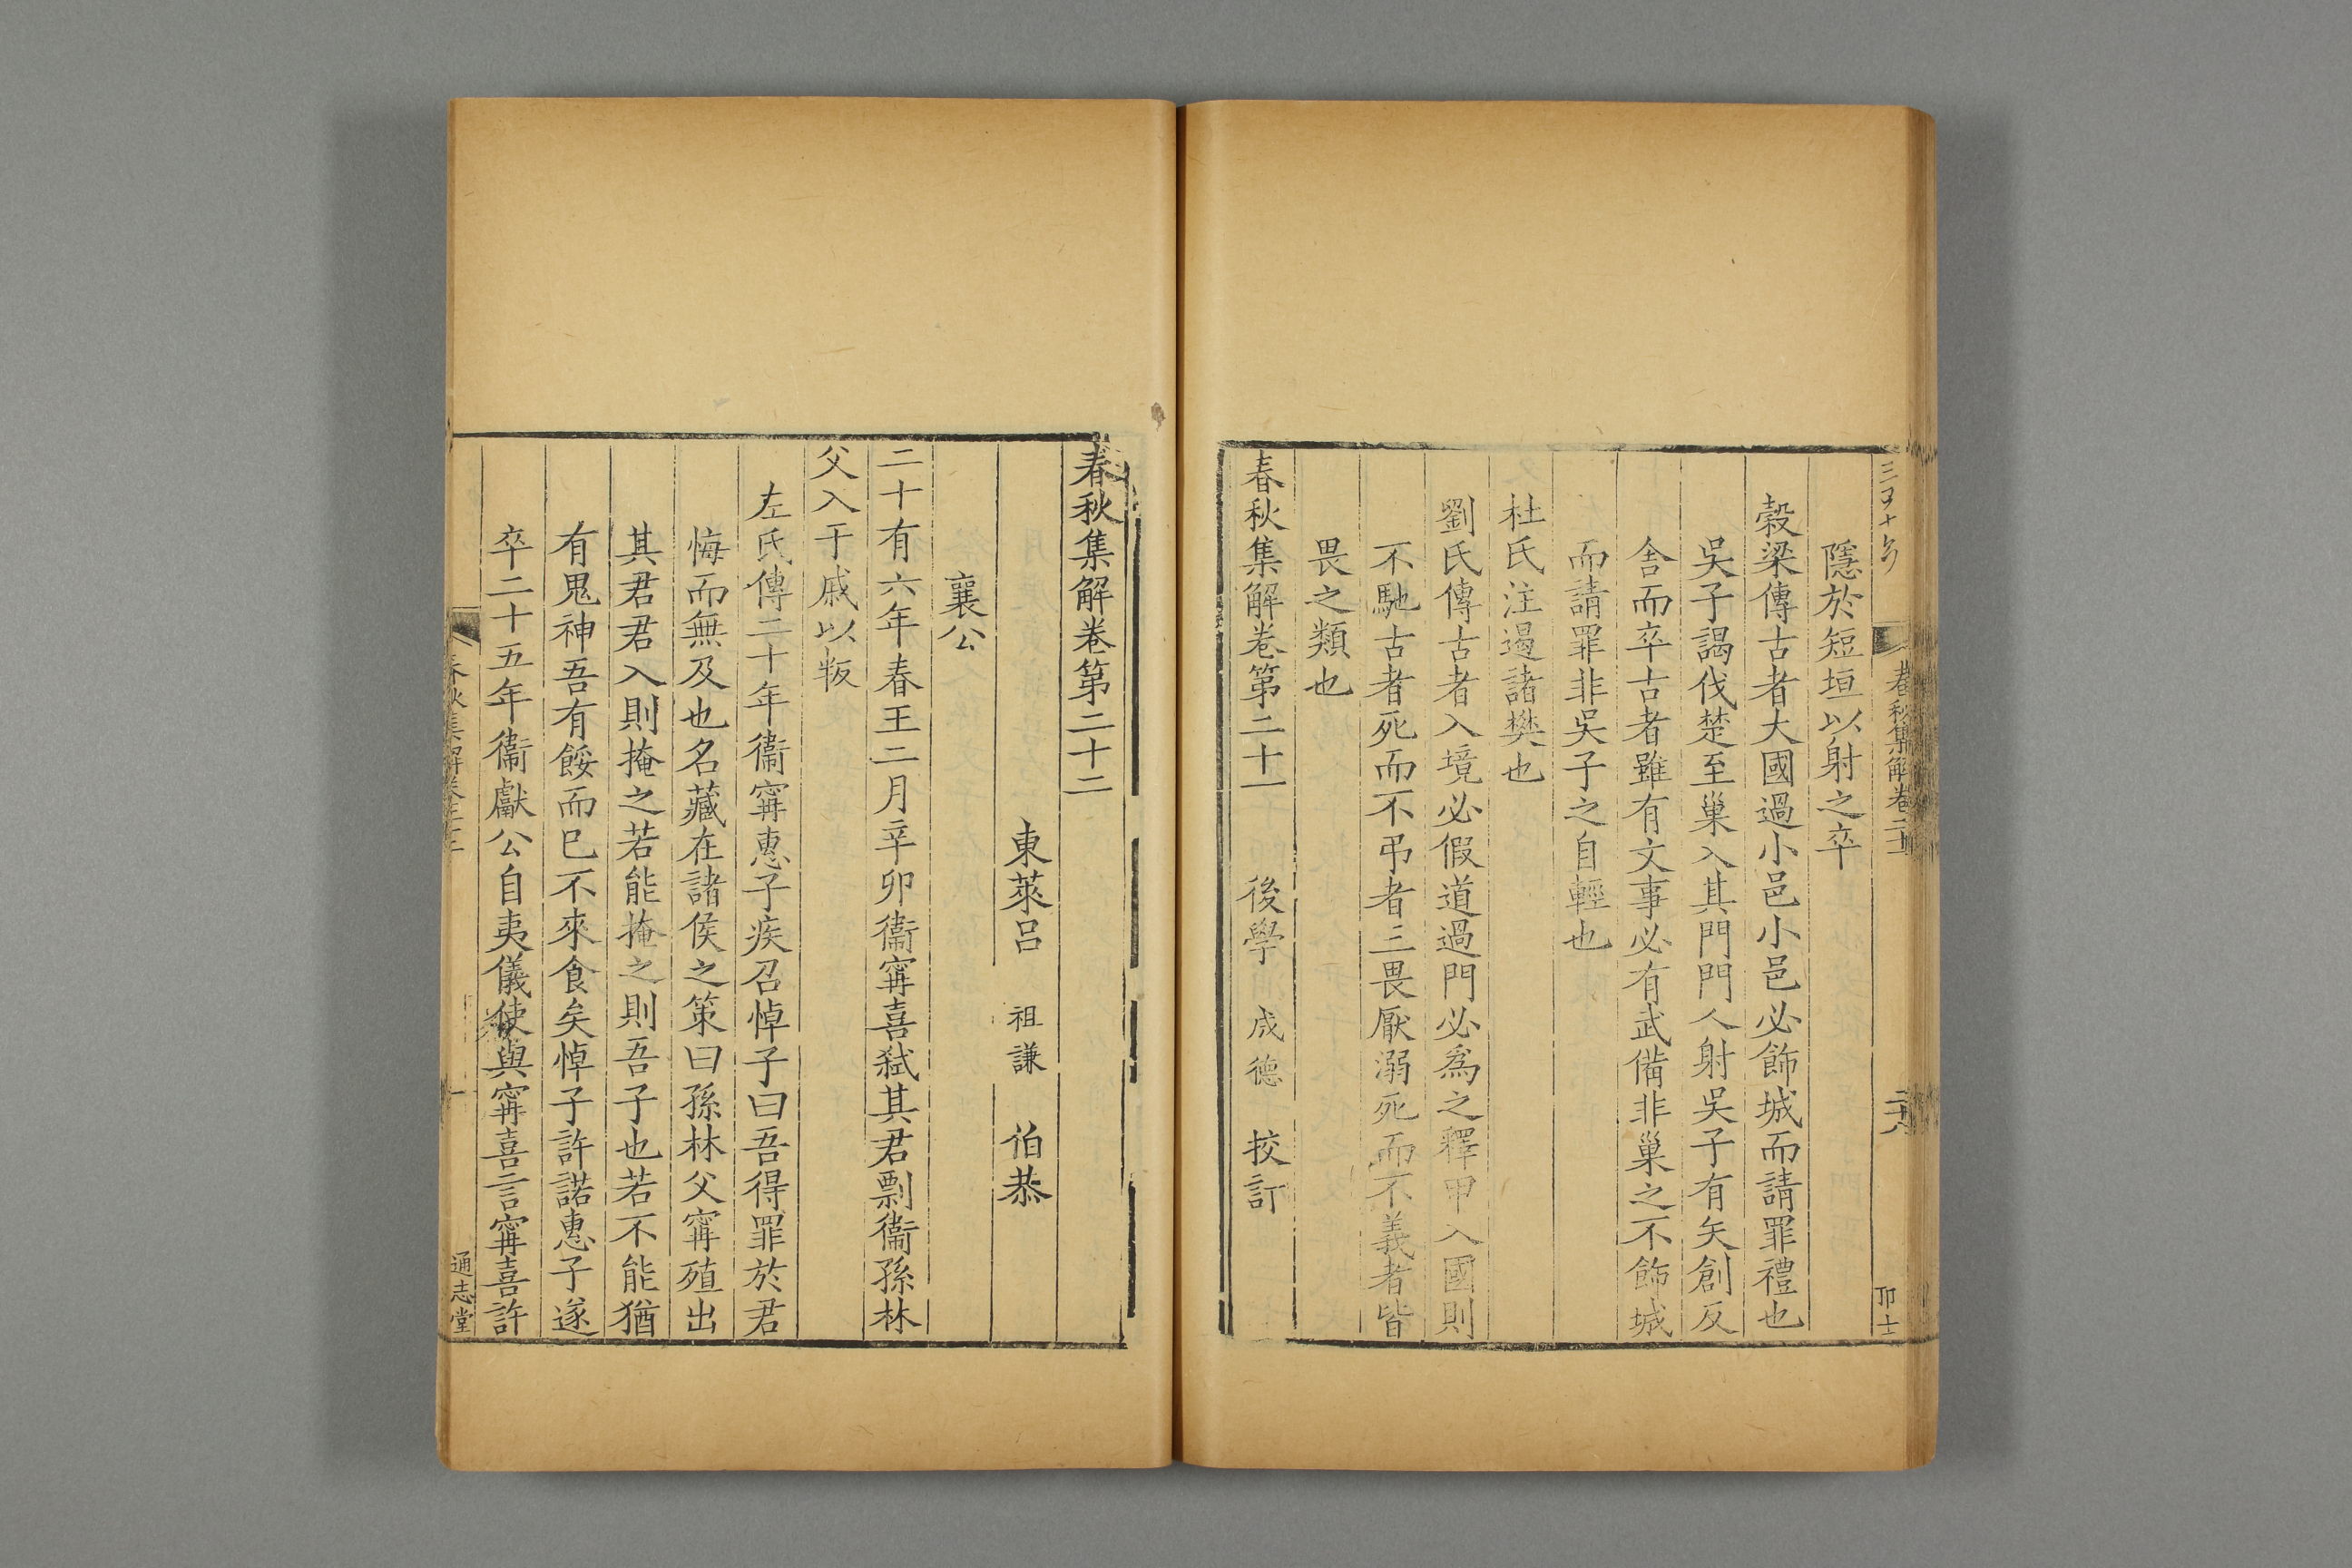 隱於短垣以射之卒
穀梁傳古者大國過小邑小邑必飾城而請罪禮也
吳子謁伐楚至巢入其門門人射吳子有矢創反
舍而卒古者雖有文事必有武備非巢之不飾城
而請罪非吳子之自輕也
杜氏注遏諸樊也
劉氏傳古者入境必假道過門必爲之釋甲入國則
不馳古者死而不弔者三畏厭溺死而不義者皆
畏之類也
春秋集解卷第二十一 後學 成德 挍訂
春秋集解卷第二十二
東萊呂 祖謙 伯恭
襄公
二十有六年春王二月辛卯衞甯喜弑其君剽衞孫林
父入于戚以叛
左氏傳二十年衞甯惠子疾召悼子曰吾得罪於君
悔而無及也名藏在諸侯之策曰孫林父甯殖出
其君君入則掩之若能掩之則吾子也若不能猶
有鬼神吾有餒而已不來食矣悼子許諾惠子遂
卒二十五年衞獻公自夷儀使與甯喜言甯喜許
春秋集解卷二十二
一
通志堂